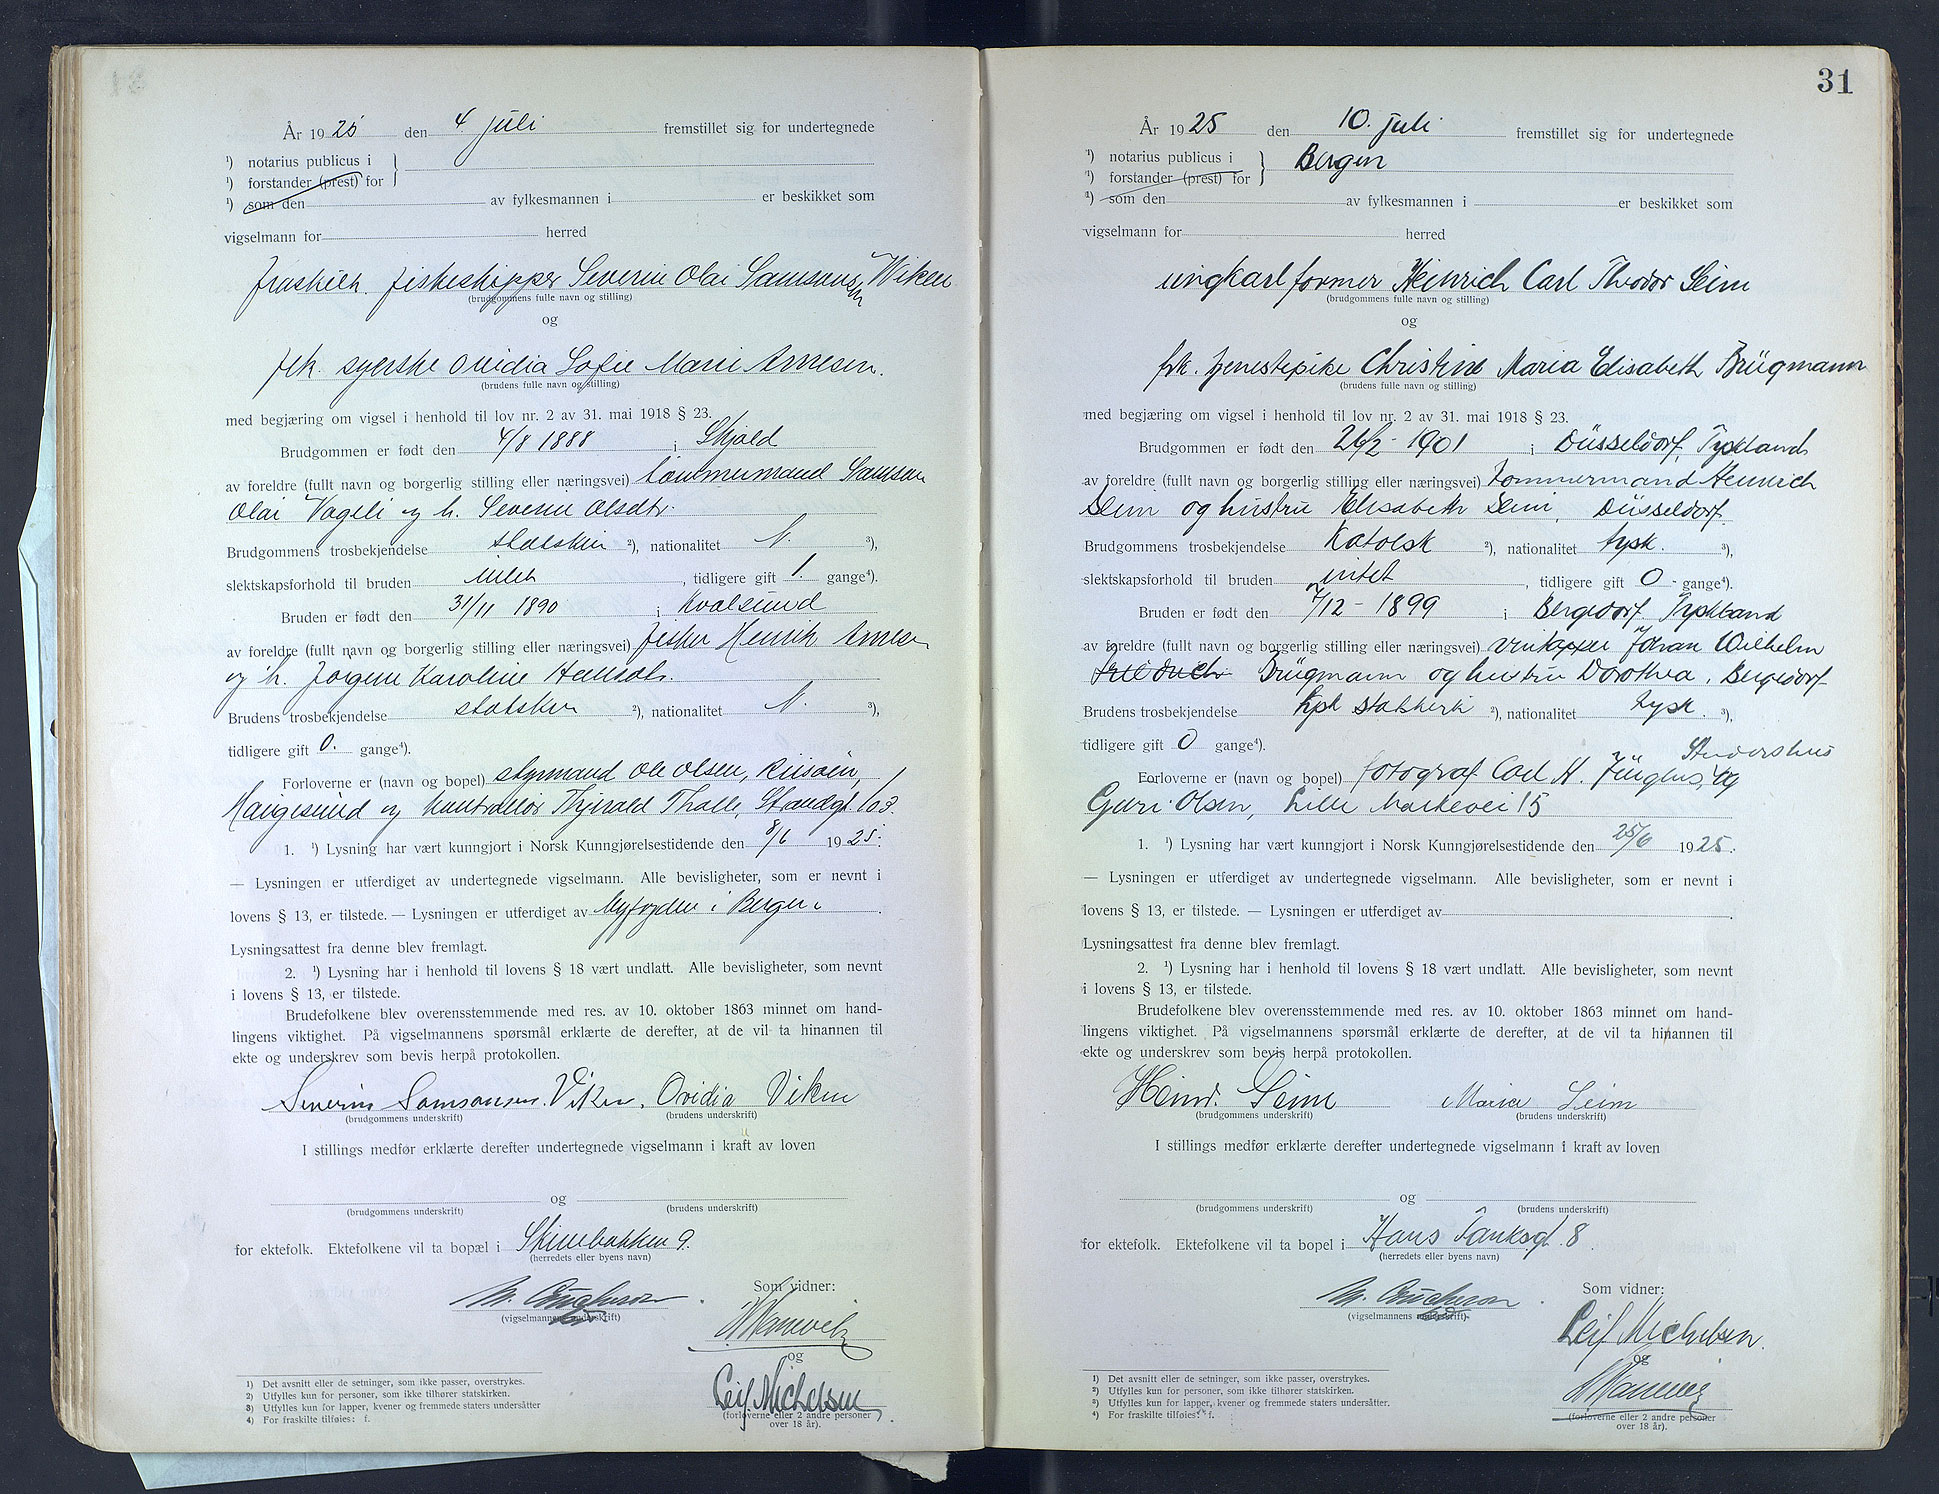 År 1925 den 4. juli fremstillet sig for undertegnede
¹) notarius publicus i
¹) forstander (prest) for
¹) som den av fylkesmannen i er beskikket som
vigselmann for herred
fraskilt. fiskeskipper Severin Olai Samsonsen Wiken
(brudgommens fulle navn og stilling)
og
frk. syerske Ovidia Sofie Marie Arnesen.
(brudens fulle navn og stilling)
med begjæring om vigsel i henhold til lov nr. 2 av 31. mai 1918 § 23.
Brudgommen er født den 4/8 1888 i Skjold
av foreldre (fullt navn og borgerlig stilling eller næringsvei) tømmermand Samson
Olai Vageli og h. Severine Olsdtr.
Brudgommens trosbekjendelse statskir ²), nationalitet N. ³),
slektskapsforhold til bruden intet, tidligere gift 1. gange⁴).
Bruden er født den 31/11 1890 i Kvalsund
av foreldre (fullt navn og borgerlig stilling eller næringsvei) fisker Henrik Arnesen
og h. Jørgine Karoline Hansdtr.
Brudens trosbekjendelse statskir ²), nationalitet N. ³),
tidligere gift 0. gange⁴).
Forloverne er (navn og bopel) styrmand Ole Olsen, Risøen,
Haugesund og kontrollør Thjerald Thalle, Strandgt. 103.
1. ¹) Lysning har vært kunngjort i Norsk Kunngjørelsestidende den 8/6 1925.
— Lysningen er utferdiget av undertegnede vigselmann. Alle bevisligheter, som er nevnt i
lovens § 13, er tilstede. — Lysningen er utferdiget av byfogden i Bergen.
Lysningsattest fra denne blev fremlagt.
2. ¹) Lysning har i henhold til lovens § 18 vært undlatt. Alle bevisligheter, som nevnt
i lovens § 13, er tilstede.
Brudefolkene blev overensstemmende med res. av 10. oktober 1863 minnet om hand-
lingens viktighet. På vigselmannens spørsmål erklærte de derefter, at de vil ta hinannen til
ekte og underskrev som bevis herpå protokollen.
Severin Samsonsen Viken. Ovidia Viken
(brudgommens underskrift) (brudens underskrift)
I stillings medfør erklærte derefter undertegnede vigselmann i kraft av loven
og
(brudgommens underskrift) (brudens underskrift)
for ektefolk. Ektefolkene vil ta bopæl i Skivebakken 9.
(herredets eller byens navn)
Som vidner:
(vigselmannens underskrift)
og
Leif Michelsen
(forloverne eller 2 andre personer
over 18 år).
1) Det avsnitt eller de setninger, som ikke passer, overstrykes.
2) Utfylles kun for personer, som ikke tilhører statskirken.
3) Utfylles kun for lapper, kvener og fremmede staters undersåtter
4) For fraskilte tilføies: f.
31
År 1925 den 10. juli fremstillet sig for undertegnede
¹) notarius publicus i Bergen
¹) forstander (prest) for
¹) som den av fylkesmannen i er beskikket som
vigselmann for herred
ungkarl former Heinrich Carl Theodor Seim
(brudgommens fulle navn og stilling)
og
frk. tjenestepike Christine Maria Elisabeth Brügmann
(brudens fulle navn og stilling)
med begjæring om vigsel i henhold til lov nr. 2 av 31. mai 1918 § 23.
Brudgommen er født den 26/2 - 1901 i Düsseldorf, Tyskland
av foreldre (fullt navn og borgerlig stilling eller næringsvei) tømmermand Heinrich
Seim og hustru Elisabeth Seim, Düsseldorf
Brudgommens trosbekjendelse Katolsk ²), nationalitet tysk. ³),
slektskapsforhold til bruden intet, tidligere gift 0 - gange⁴).
Bruden er født den 7/12 - 1899 i Bergedorf, Tyskland
av foreldre (fullt navn og borgerlig stilling eller næringsvei) Johan Wilhelm
Friedrich Brügmann og hustru Dorothea, Bergedorf
Brudens trosbekjendelse tysk statskirk ²), nationalitet tysk. ³),
tidligere gift 0 gange⁴).
Forloverne er (navn og bopel) fotograf Carl H. Jünglus, og
Guri Olsen, Lille Markevei 15
1. ¹) Lysning har vært kunngjort i Norsk Kunngjørelsestidende den 25/6 1925.
— Lysningen er utferdiget av undertegnede vigselmann. Alle bevisligheter, som er nevnt i
lovens § 13, er tilstede. — Lysningen er utferdiget av
Lysningsattest fra denne blev fremlagt.
2. ¹) Lysning har i henhold til lovens § 18 vært undlatt. Alle bevisligheter, som nevnt
i lovens § 13, er tilstede.
Brudefolkene blev overensstemmende med res. av 10. oktober 1863 minnet om hand-
lingens viktighet. På vigselmannens spørsmål erklærte de derefter, at de vil ta hinannen til
ekte og underskrev som bevis herpå protokollen.
Heinr. Seim Maria Seim
(brudgommens underskrift) (brudens underskrift)
I stillings medfør erklærte derefter undertegnede vigselmann i kraft av loven
og
(brudgommens underskrift) (brudens underskrift)
for ektefolk. Ektefolkene vil ta bopel i Hans Tanksgt. 8.
(herredets eller byens navn)
Som vidner:
(vigselmannens underskrift)
Leif Michelsen
og
(forloverne eller 2 andre personer
over 18 år).
1) Det avsnitt eller de setninger, som ikke passer, overstrykes.
2) Utfylles kun for personer, som ikke tilhører statskirken.
3) Utfylles kun for lapper, kvener og fremmede staters undersåtter.
4) For fraskilte tilføies: f.